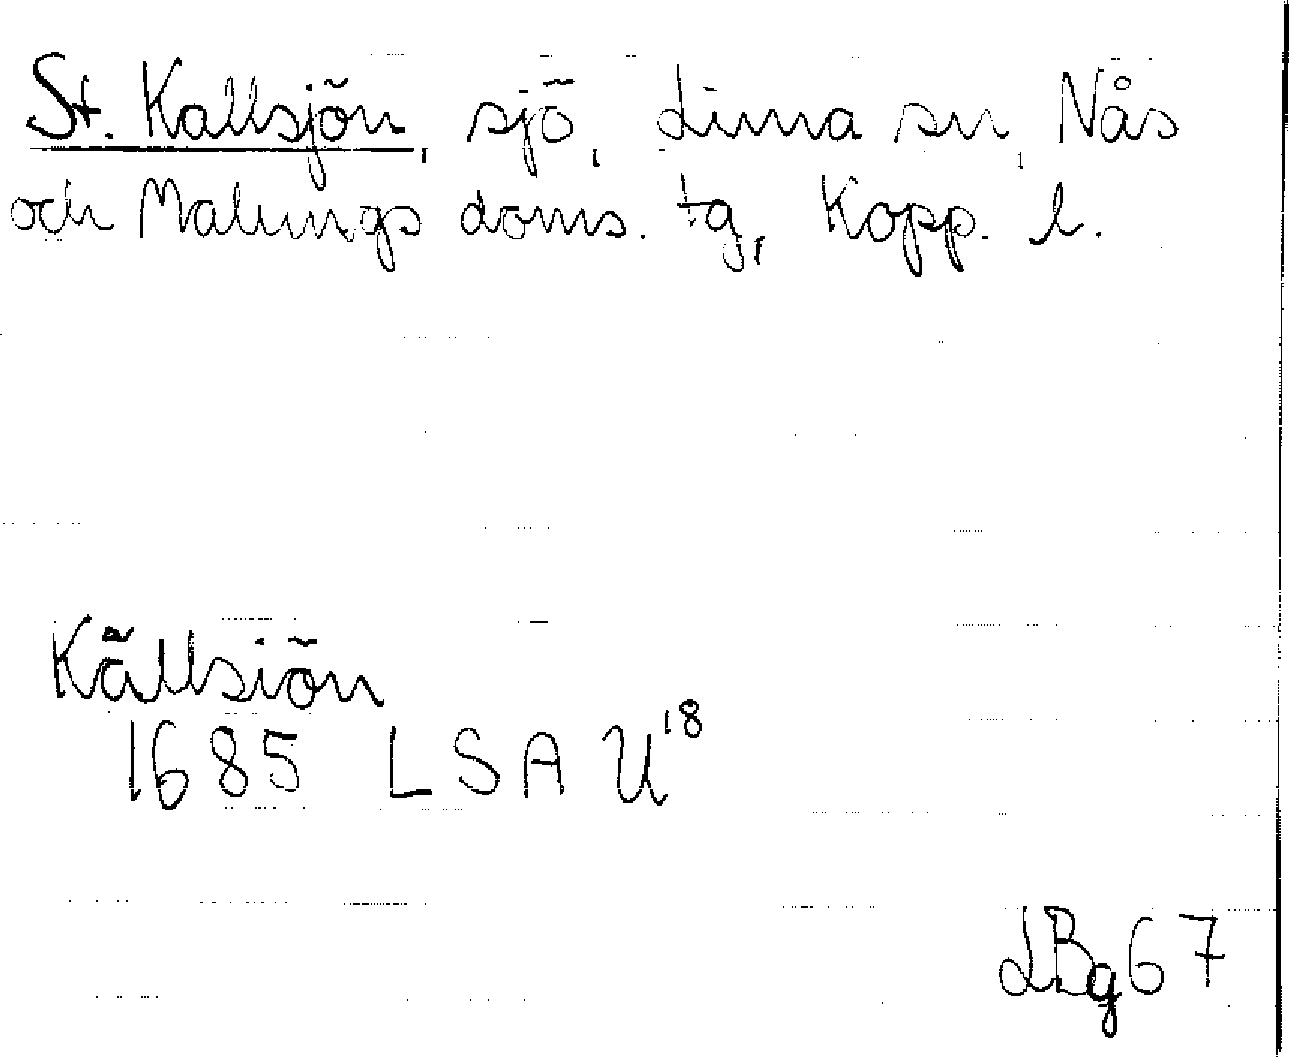 St. Kallsjön, sjö, Lima sn, Nås
och Malungs doms. tg, Kopp. l.
Källsiön
1685 LSA U18
LBg67